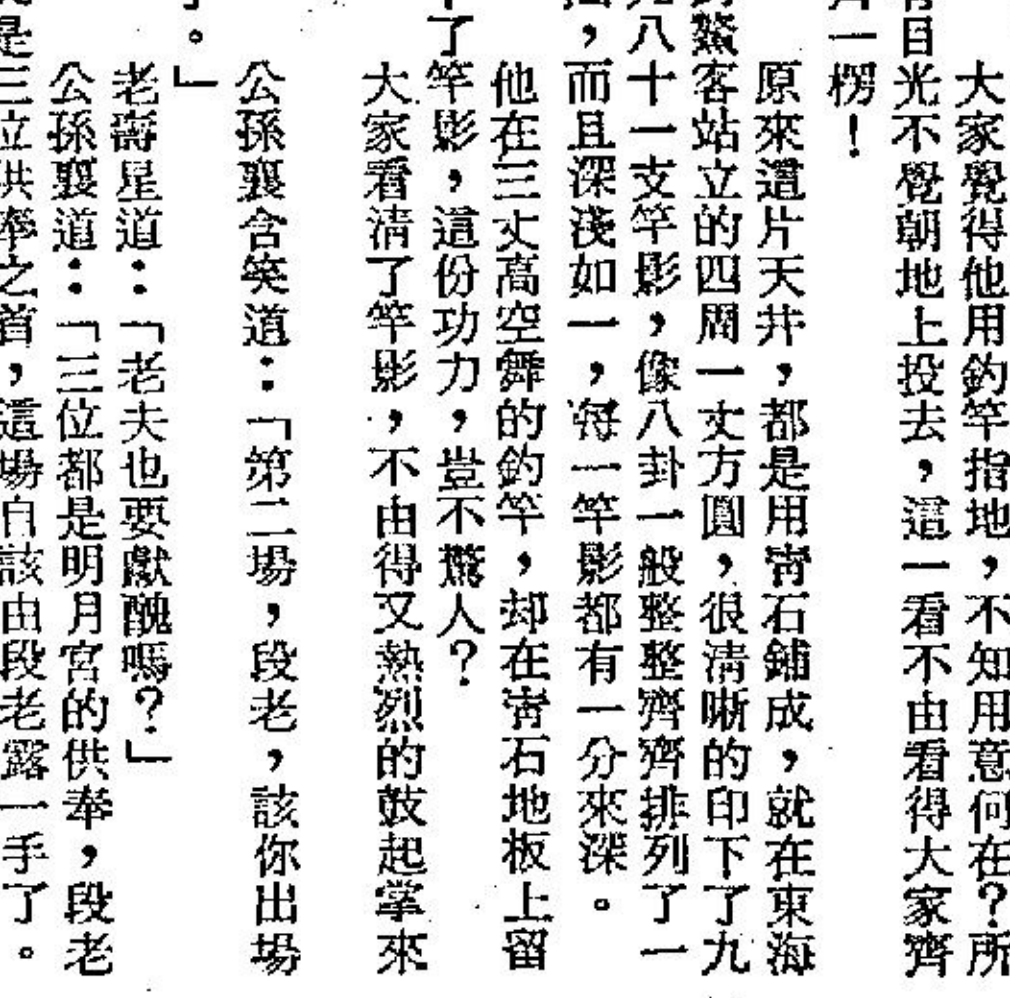 大家覺得他用釣竿指地，不知用意何在？所
有目光不覺朝地上投去，這一看不由看得大家齊
齊一楞！
原來這片天井，都是用青石鋪成，就在東海
釣鰲客站立的四周一丈方圓，很清晰的印下了九
九八十一支竿影，像八卦一般整整齊齊排列了一
，而且深淺如一，每一竿影都有一分來深。
他在三丈高空舞的釣竿，却在青石地板上留
下了竿影，這份功力，豈不驚人？
大家看清了竿影，不由得又熱烈的鼓起掌來
了。
公孫襄含笑道：「第二場，段老，該你出場
了。」
老壽星道：「老夫也要獻醜嗎？」
公孫襄道：「三位都是明月宮的供奉，段老
是三位供奉之首，這場自該由段老露一手了。